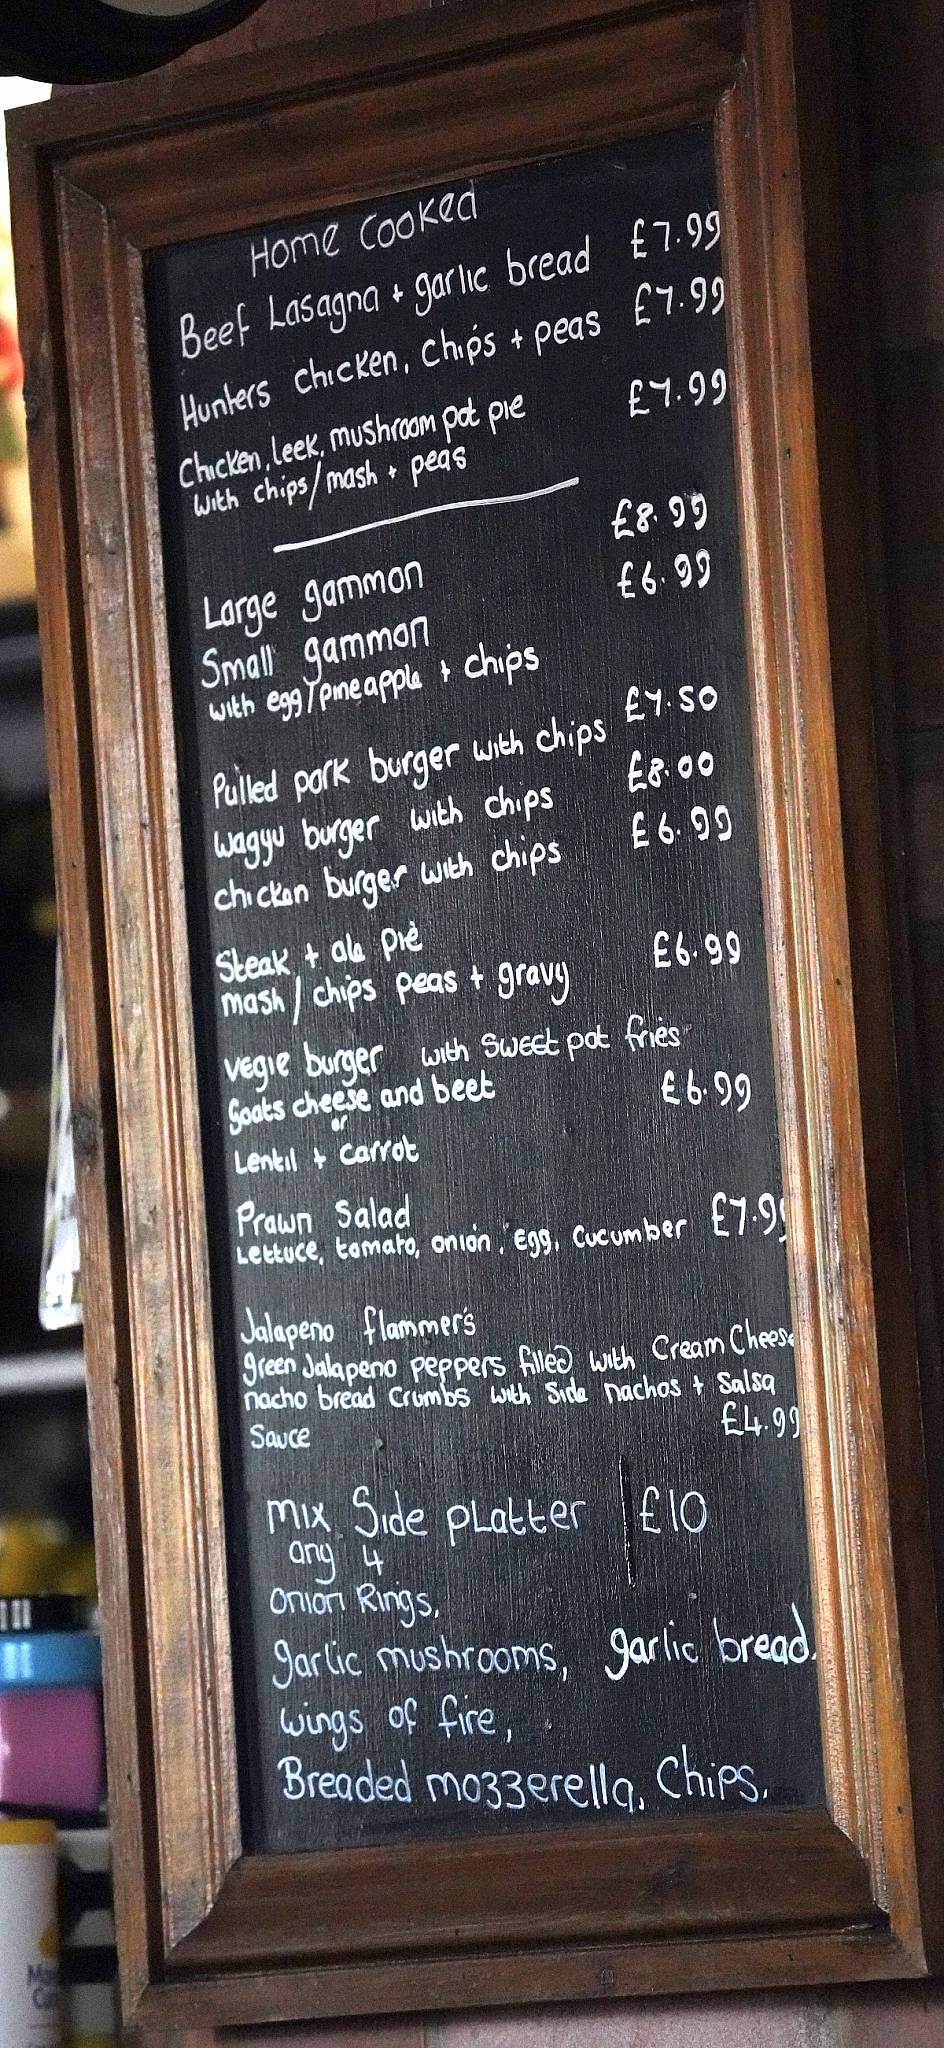 Home Cooked
Beef Lasagna + garlic bread £7.99
Hunters Chicken, Chips + peas £7.99
Chicken, leek, mushroom pot pie £7.99
with chips/mash + peas
Large gammon £8.99
Small gammon £6.99
with egg/pineapple + chips
Pulled pork burger with chips £7.50
Wagyu burger with chips £8.00
chicken burger with chips £6.99
Steak + ale pie
mash/chips peas + gravy £6.99
vegie burger with sweet pot fries
Goats cheese and beet £6.99
or
Lentil + carrot
Prawn Salad
Lettuce, tomato, onion, egg, cucumber £7.99
Jalapeno flammer's
green Jalapeno peppers filled with Cream Cheese
nacho bread crumbs with side nachos + Salsa
Sauce £4.99
Mix Side platter £10
any 4
Onion Rings,
garlic mushrooms, garlic bread,
wings of fire,
Breaded mozzerella, Chips.